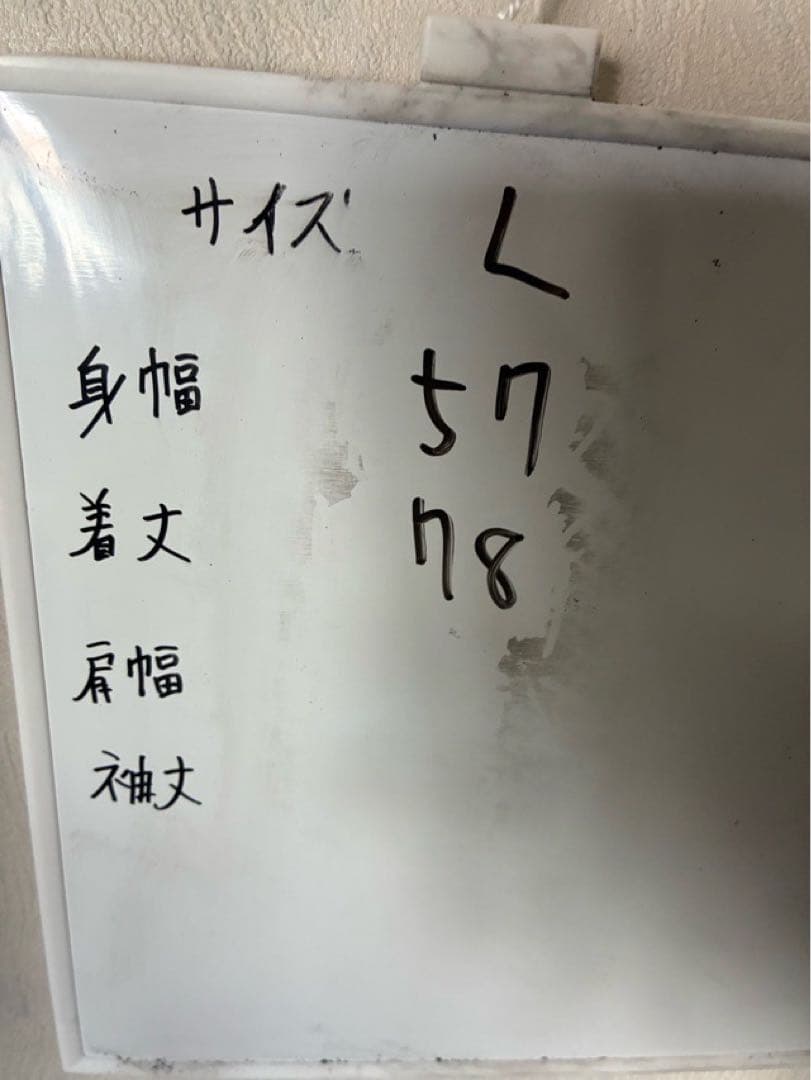 サイズ L
身幅 57
着丈 78
肩幅
袖丈